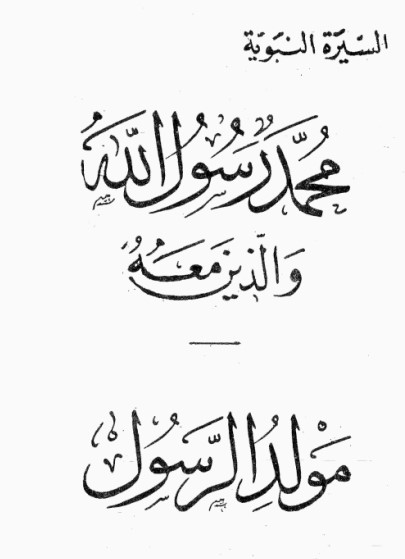 السّيرَة النَّبَويَّة
مُحَمَّدٌ رَسُولُ اللَّهِ
وَالَّذِينَ مَعَهُ
مَوْلِدُ الرَّسُول